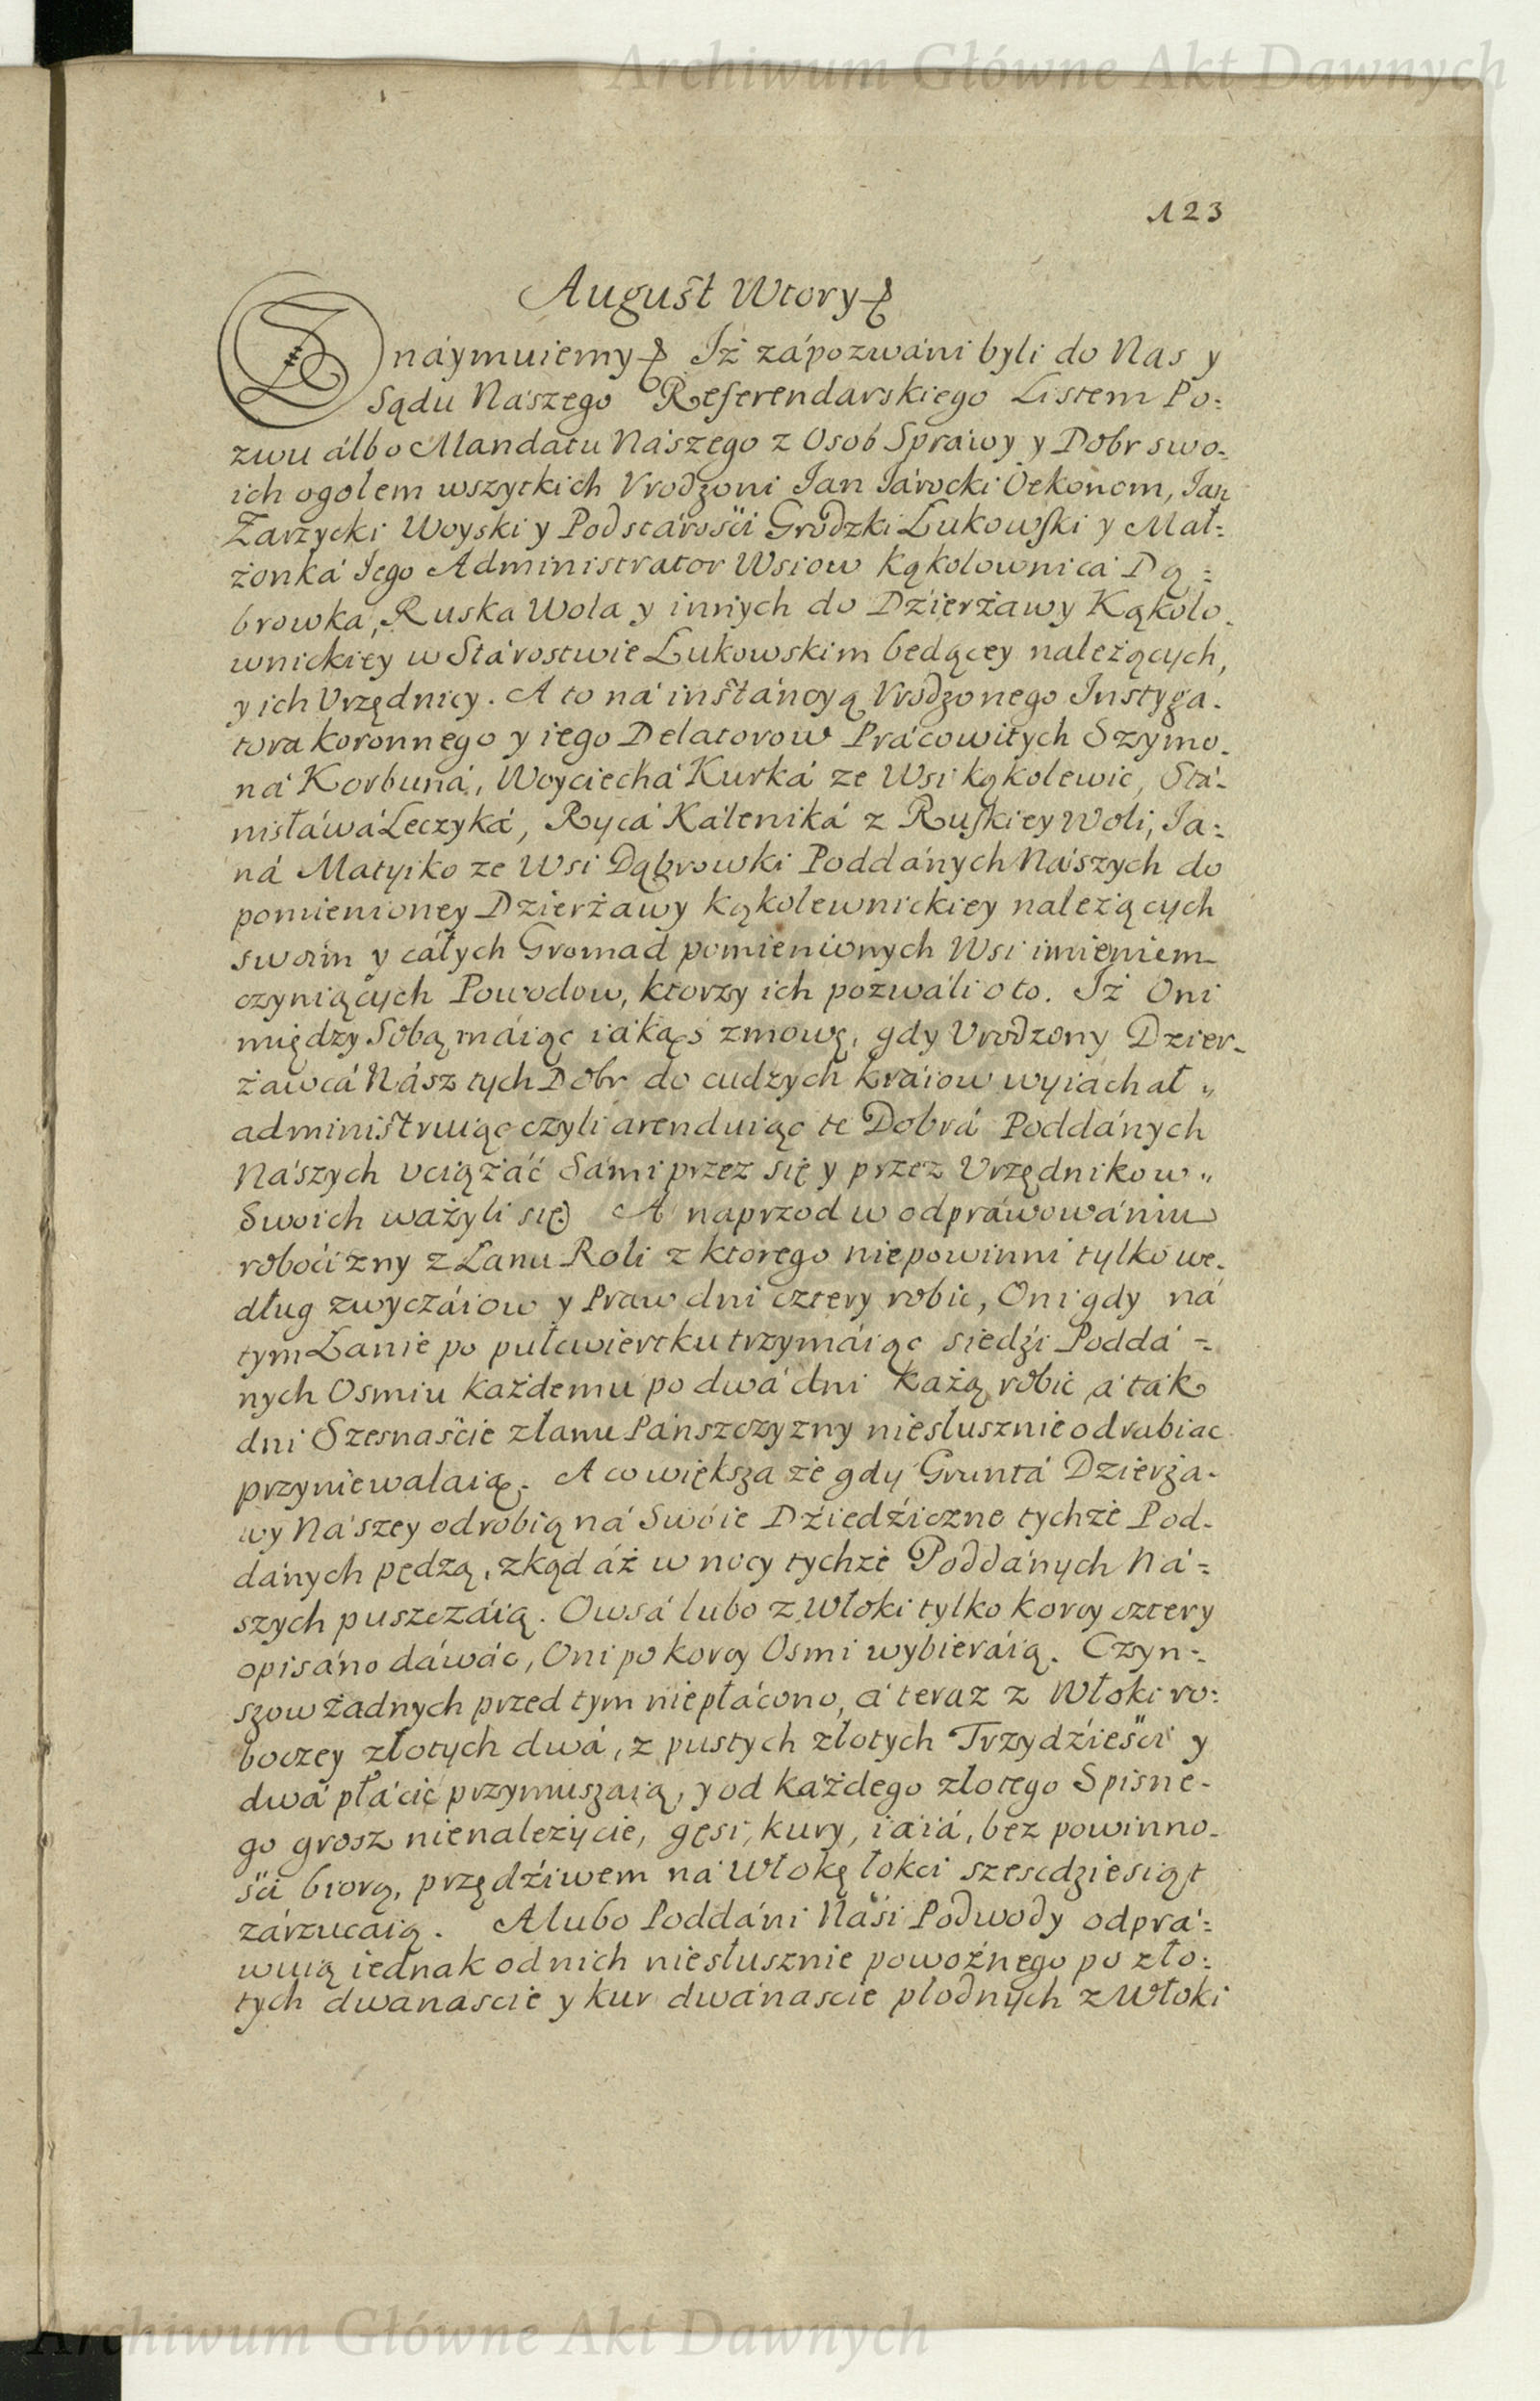 Archiwum Główne Akt Dawnych
123
August Wtory
Znáymuiemy Iż zápozwáni byli do Nas y
Sądu Naszego Referendarskiego Listem Po:
zwu álbo Mandatu Nászego z Osob Sprawy y Dobr swo-
ich ogolem wszytkich Vrodzoni Ian Iárocki Oekonom, Ian
Zarzycki Woyski y Podstárośći Grodzki Lukowski y Mał:
żonká Iego Administrator Wsiow Kąkolownicá Dą:
browka, Ruska Wola y innych do Dzierżawy Kąkolo-
wnickiey w Stárostwie Lukowskim bedącey należących,
y ich Vrzędnicy. A to ná instáncyą Vrodzonego Instyga-
tora koronnego y iego Delatorow Prácowitych Szymo-
ná Korbuná, Woyciechá Kurká ze Wsi kąkolewic, Stá-
nisłáwá Leczyká, Rycá Káleniká z Ruskiey Woli, Ia:
ná Matyiko ze Wsi Dąbrowki Poddánych Nászych do
pomienioney Dzierżawy kąkolewnickiey należących
swoim y cáłych Gromad pomienionych Wsi imieniem
czyniących Powodow, ktorzy ich pozwáli o to. Iż Oni
między Sobą máiąc iakąś zmowę, gdy Vrodzony Dzier-
żawcá Nász tych Dobr do cudzych kráiow wyiachał
administruiąc czyli arenduiąc te Dobrá Poddánych
Nászych vciążáć Sámi przez się y przez Vrzędnikow
Swoich ważyli się A naprzod w odpráwowániu
roboćizny z Lanu Roli z ktorego niepowinni tylko we-
dług zwyczáiow y Praw dni cztery robic, Oni gdy ná
tym Lanie po pułcwiertku trzymáiąc siedzi Poddá=
nych Osmiu każdemu po dwá dni każą robic á tak
dni Szesnaśćie z łanu Pánszczyzny niesłusznie odrabiac
przyniewalaią. A co większa że gdy Gruntá Dzierża-
wy Nászey odrobią ná Swoie Dźiedźiczne tychże Pod-
dánych pędzą, zkąd áż w nocy tychże Poddánych Ná=
szych puszczáią. Owsá lubo z Włoki tylko korcy cztery
opisáno dáwác, Oni po korcy Osmi wybieráią. Czyn=
szow żadnych przed tym niepłácono, á teraz z Włoki ro:
boczey złotych dwá, z pustych złotych Trzydźieśći y
dwá płácić przymuszaią, y od każdego złotego Spisne-
go grosz nienależycie, gęsi, kury, iaiá, bez powinno-
śći biorą, przędźiwem ná Włokę łokci szescdziesiąt
zárzucaią. A lubo Poddáni Náśi Podwody odprá:
wuią iednak od nich niesłusznie powoźnego po zło:
tych dwanascie y kur dwánascie płodnych z Włoki
Archiwum Główne Akt Dawnych